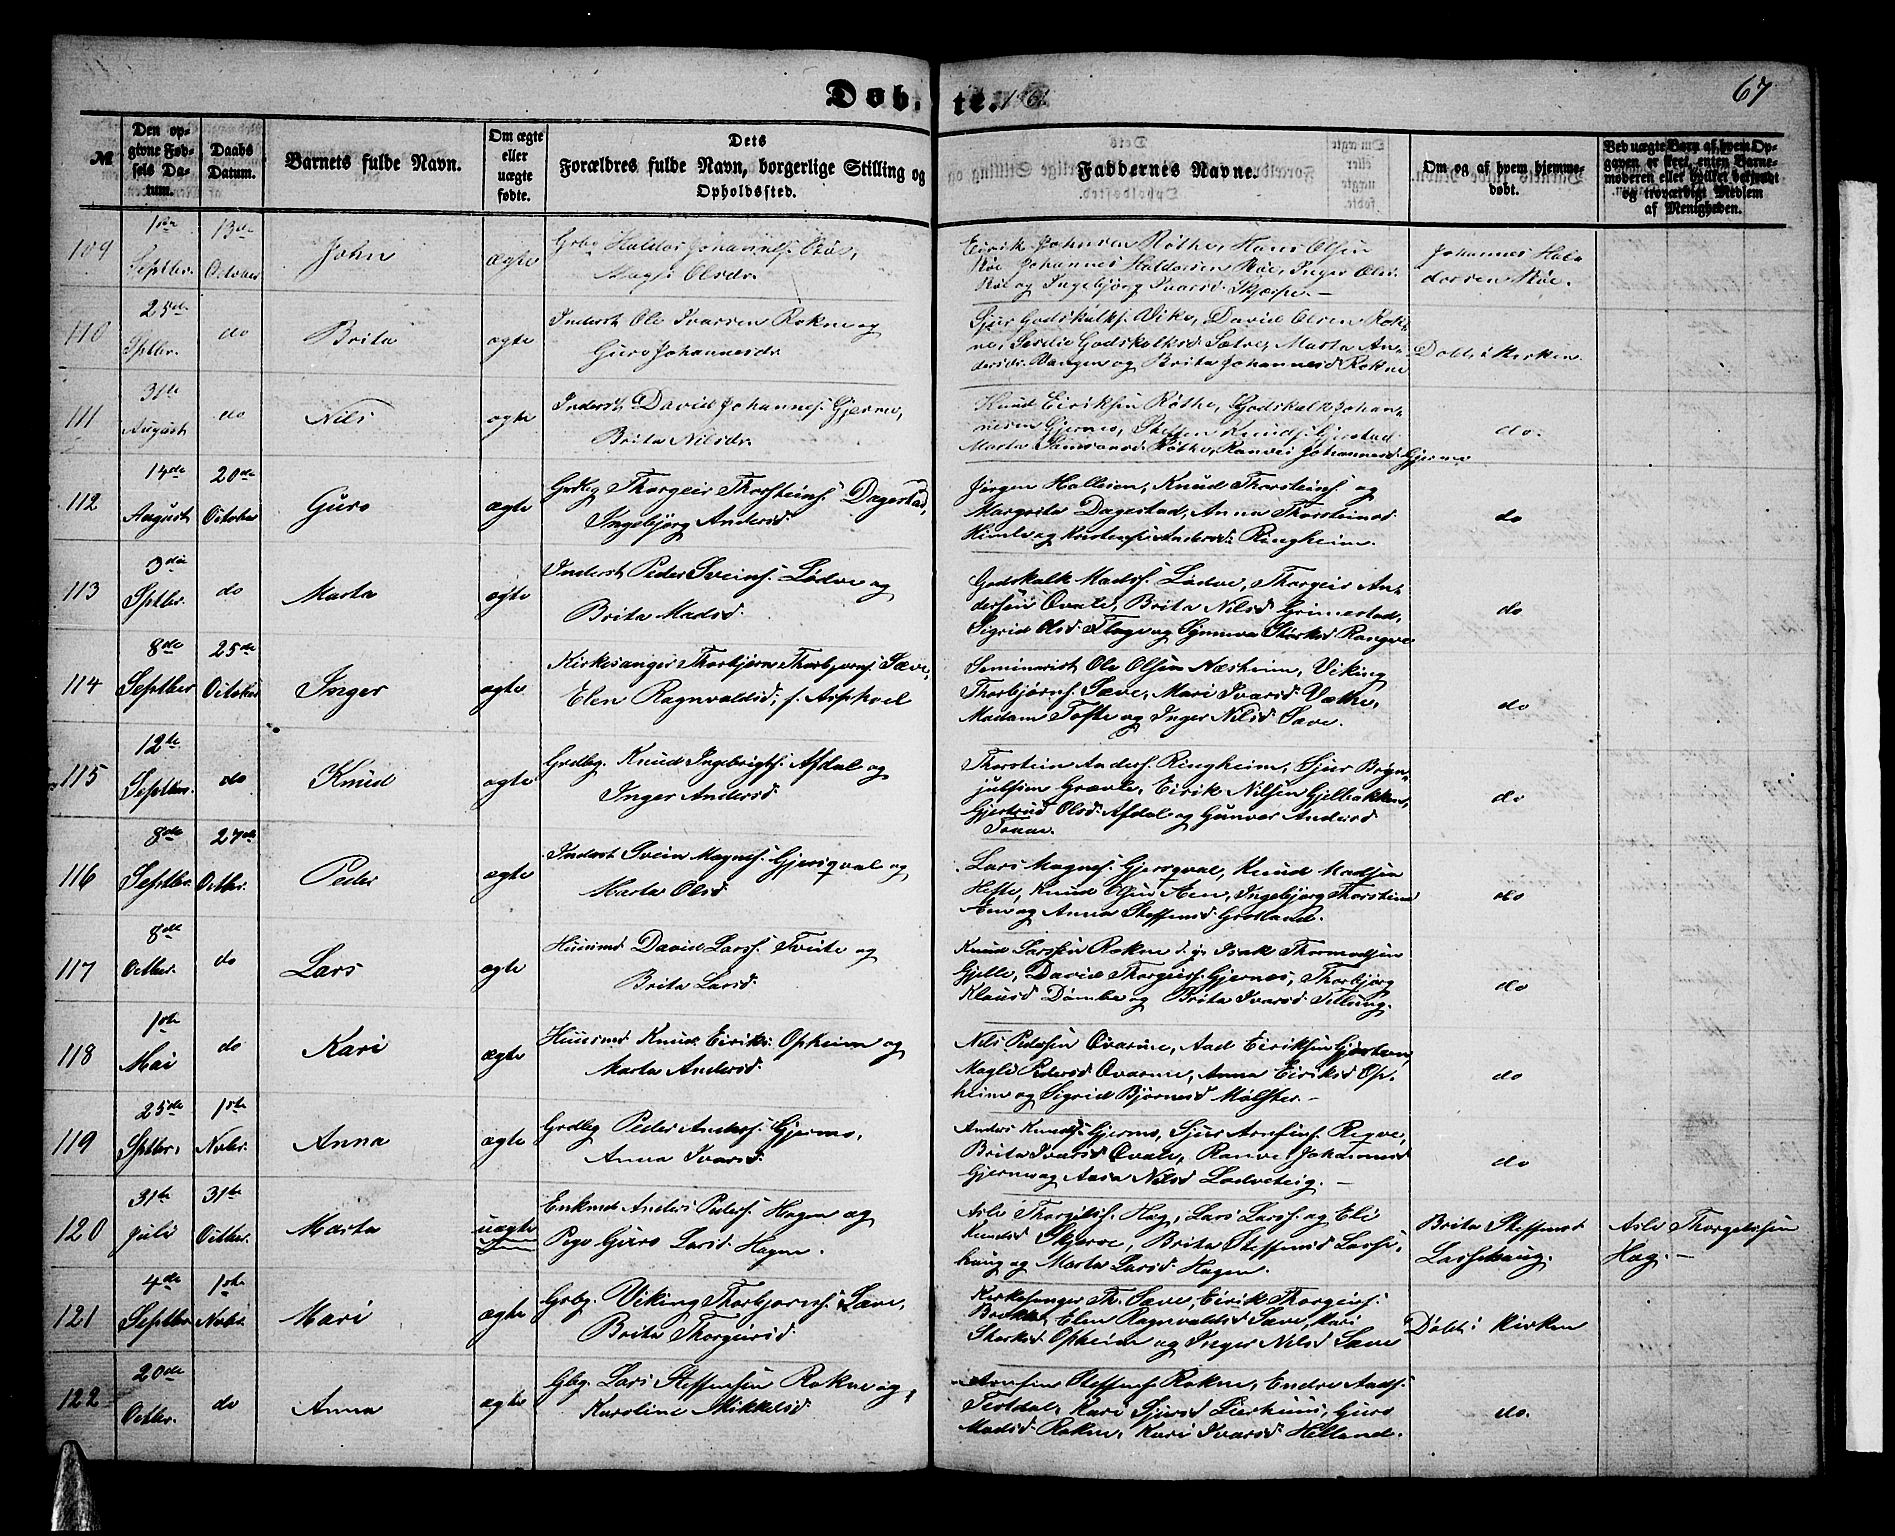 Døb- te. 1861. 67
№
Den op-
givne Fød-
sels Da-
tum.
Daabs
Datum.
Barnets fulde Navn.
Om ægte
eller
uægte
fødte.
Dets
Forældres fulde Navn, borgerlige Stilling og
Opholdssted.
Faddernes Navne.
Om og af hvem hjemme-
døbt.
Ved uægte Barn af hvem Op-
gaven er skeet, enten Barne-
moderen eller hvilket bekjendt
og troværdigt Medlem
af Menigheden.
109
Septbr.
13de
October
John
ægte
Grbg Haldor Johannes.
Olsdr.
Eirik Johnsen Røthe, Hans Olsen
Røe Johannes Haldorsen Røe, Inger Olsd.
Røe og Ingebjørg Ivarsd. Skjerpe.-
Johannes Hal-
dorsen Røe.
110
25de
Sptbr.
do
Brita
ægte
Inderst Ole Ivarsen Rokne og
Guro Johannesdr.
Sjur Godskalks. Vike, David Olsen Rok-
ne, Godskalksd. Sætre, Marta An-
dersdr. Vangen og Brita Johannesd Rokne
Døbt i Kirken
111
31te
August
do
Nils
ægte
Inderst David Johannes. Gjerme,
Brita Nilsdr.
Knud Eiriksen Røthe, Godskalk Johan-
nesen Gjerme, Steffen Knuds. Gjerstad
Marta Samsonsd Røthe, Ranvei Johannesd. Gjerme
do.
112
14de
August
20de
October
Guro
ægte
Grdbg Thorgeir Thorsteins. Dagestad,
Ingebjørg Andersd.
Jørgen Hallesen, Knud Thorsteins. og
Margrita Dagestad, Anna Thorsteinsd
Himle og Andersd. Ringheim.
do
113
3die
Sptbr.
do
Marta
ægte
Inderst Peder Sveins. Lødve og
Brita Madsd.
Godskalk Madss. Lødve, Thorgeir An-
dersen Qvale, Brita Nilsd Grimestad,
Sigrid Olsd. Flage og Gunvor Størksd Rongve
do
114
8de
Septber
25de
October
Inger
ægte
Kirkesanger Thorbjørn Thorbjørns. Sæve,
Elen Ragnvaldsd; f. Asphoel
Seminarist Ole Olsen Næsheim, Viking
Thorbjørns. Sæve, Mari Ivarsd. Væthe,
Madam Tofte og Inger Nilsd Sæve.
do
115
12te
Septber.
do
Knud
ægte
Grdbg. Knud Ingebrigts. Afdal og
Inger Andersd.
Thorstein Anders. Ringheim, Sjur Bryn-
julfsen Grævle, Eirik Nilsen Gjelbakken,
Gjertrud Olsd. Afdal og Gunvor Andersd
do
116
8de
Septbr.
27de
Octbr.
Peder
ægte
Inderst Svein Magnes. Gjersqval og
Marta Olsd.
Lars Magnes. Gjersqval, Knud Madsen
Hefte, Knud Aen, Ingebjørg Thorsteinsd
Aen og Anna Steffensd Grotland.
do
117
8de
Octber.
do
Lars
ægte
Huusmd David Larss. Tveite og
Brita Larsd.
Knud Larssen Rokne d. y. Isak Thormodsen
Gjelle, David Thorgeirs. Gjernes, Thorbjørg
Klausd Dømbe og Brita Ivarsd Tillung.
do
118
1ste
Mai
do
Kari
ægte
Huusmd Knud Eiriks. Opheim og
Marta Andersd.
Nils Pedersen Qvarme, Aad Eiriksen Gjøstein,
Magli Pedersd Qvarme, Anna Eiriksd Op-
heim og Sigrid Bjørnesd Mølster.-
do
119
25de
Sptbr.
1ste
Novbr.
Anna
ægte
Grdbg Peder Anders. Gjerme,
Anna Ivarsd.
Anders Knuds. Gjerme, Sjur Arnfins. Regve,
Brita Ivarsd Qvale, Ranvei Johannesd
Gjerme og Aasa Nilsd Lødveteig.-
do
120
31te
Juli
31te
Octber.
Marta
uægte
Enkmd Anders Peders. Hagen og
Pige Guro Larsd. Hagen.
Asle Thorgilss. Hag, Lars Larss. og Eli
Knudsd Skjerve, Brita Steffensd Lasse-
haug og Marta Larsd Hagen.
Brita Steffensd
Lassehaug.
Asle Thorgelssen
Hag.-
121
4de
Septbr.
1ste
Novbr.
Mari
ægte
Grbg. Viking Thorbjørns. Sæve,
Brita Thorgeirsd.
Kirkesanger Th. Sæve, Eirik Thorgeirs.
Elen Ragnvaldsd Sæve, Kari
Størksd Opheim og Inger Nilsd Sæve
Døbt i Kirken
122
20de
Octbr.
do
Anna
ægte
Gbg. Lars Steffensen Rokne og
Karoline Mikkelsd
Arnfin Steffens. Rokne, Endre Aads.
Testdal, Kari Sjursd Lierhuus, Guro
Madsd Rokne, Kari Ivarsd Helland.
do.